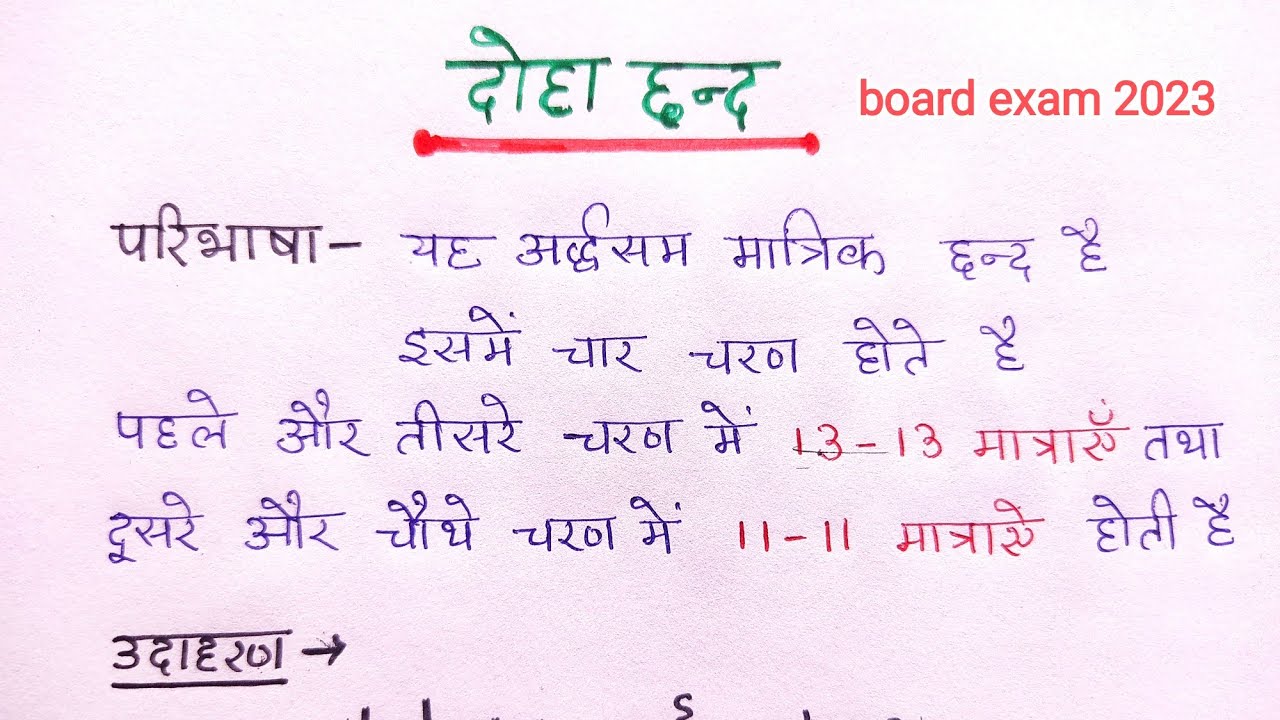 दोहा छन्द
board exam 2023
परिभाषा - यह अर्द्धसम मात्रिक छन्द है
इसमें चार चरण होते है
पहले और तीसरे चरण में 13-13 मात्राएँ तथा
दूसरे और चौथे चरण में 11-11 मात्राऐ होती है
उदाहरण →